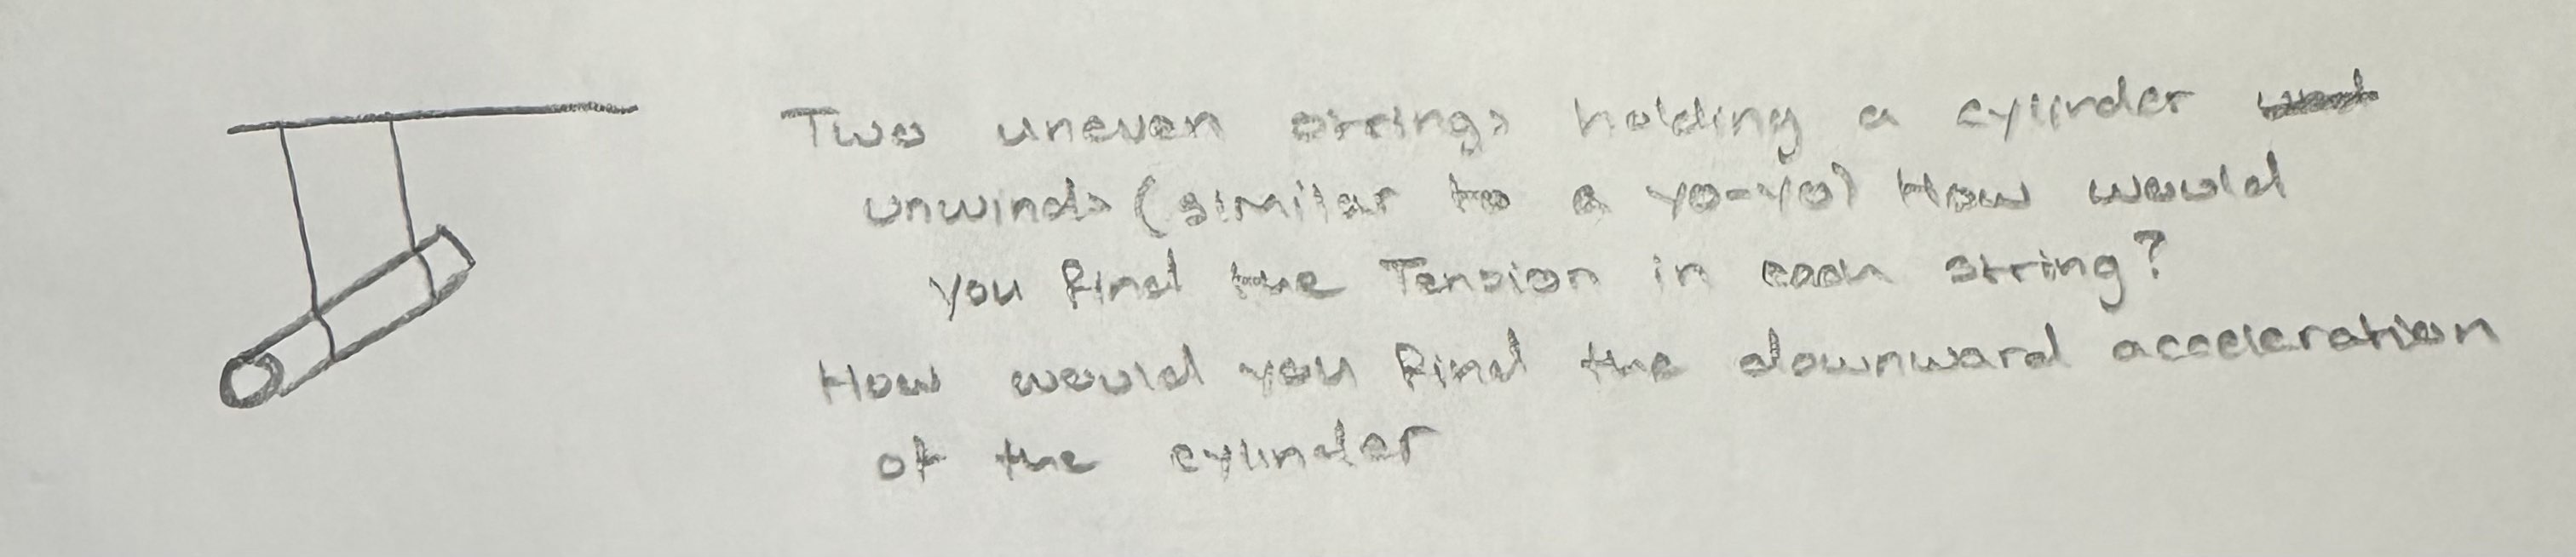 Two uneven strings holding a cylinder
unwinds (similar to a yo-yo) How would
you find the Tension in each string?
How would you find the downward acceleration
of the cylinder